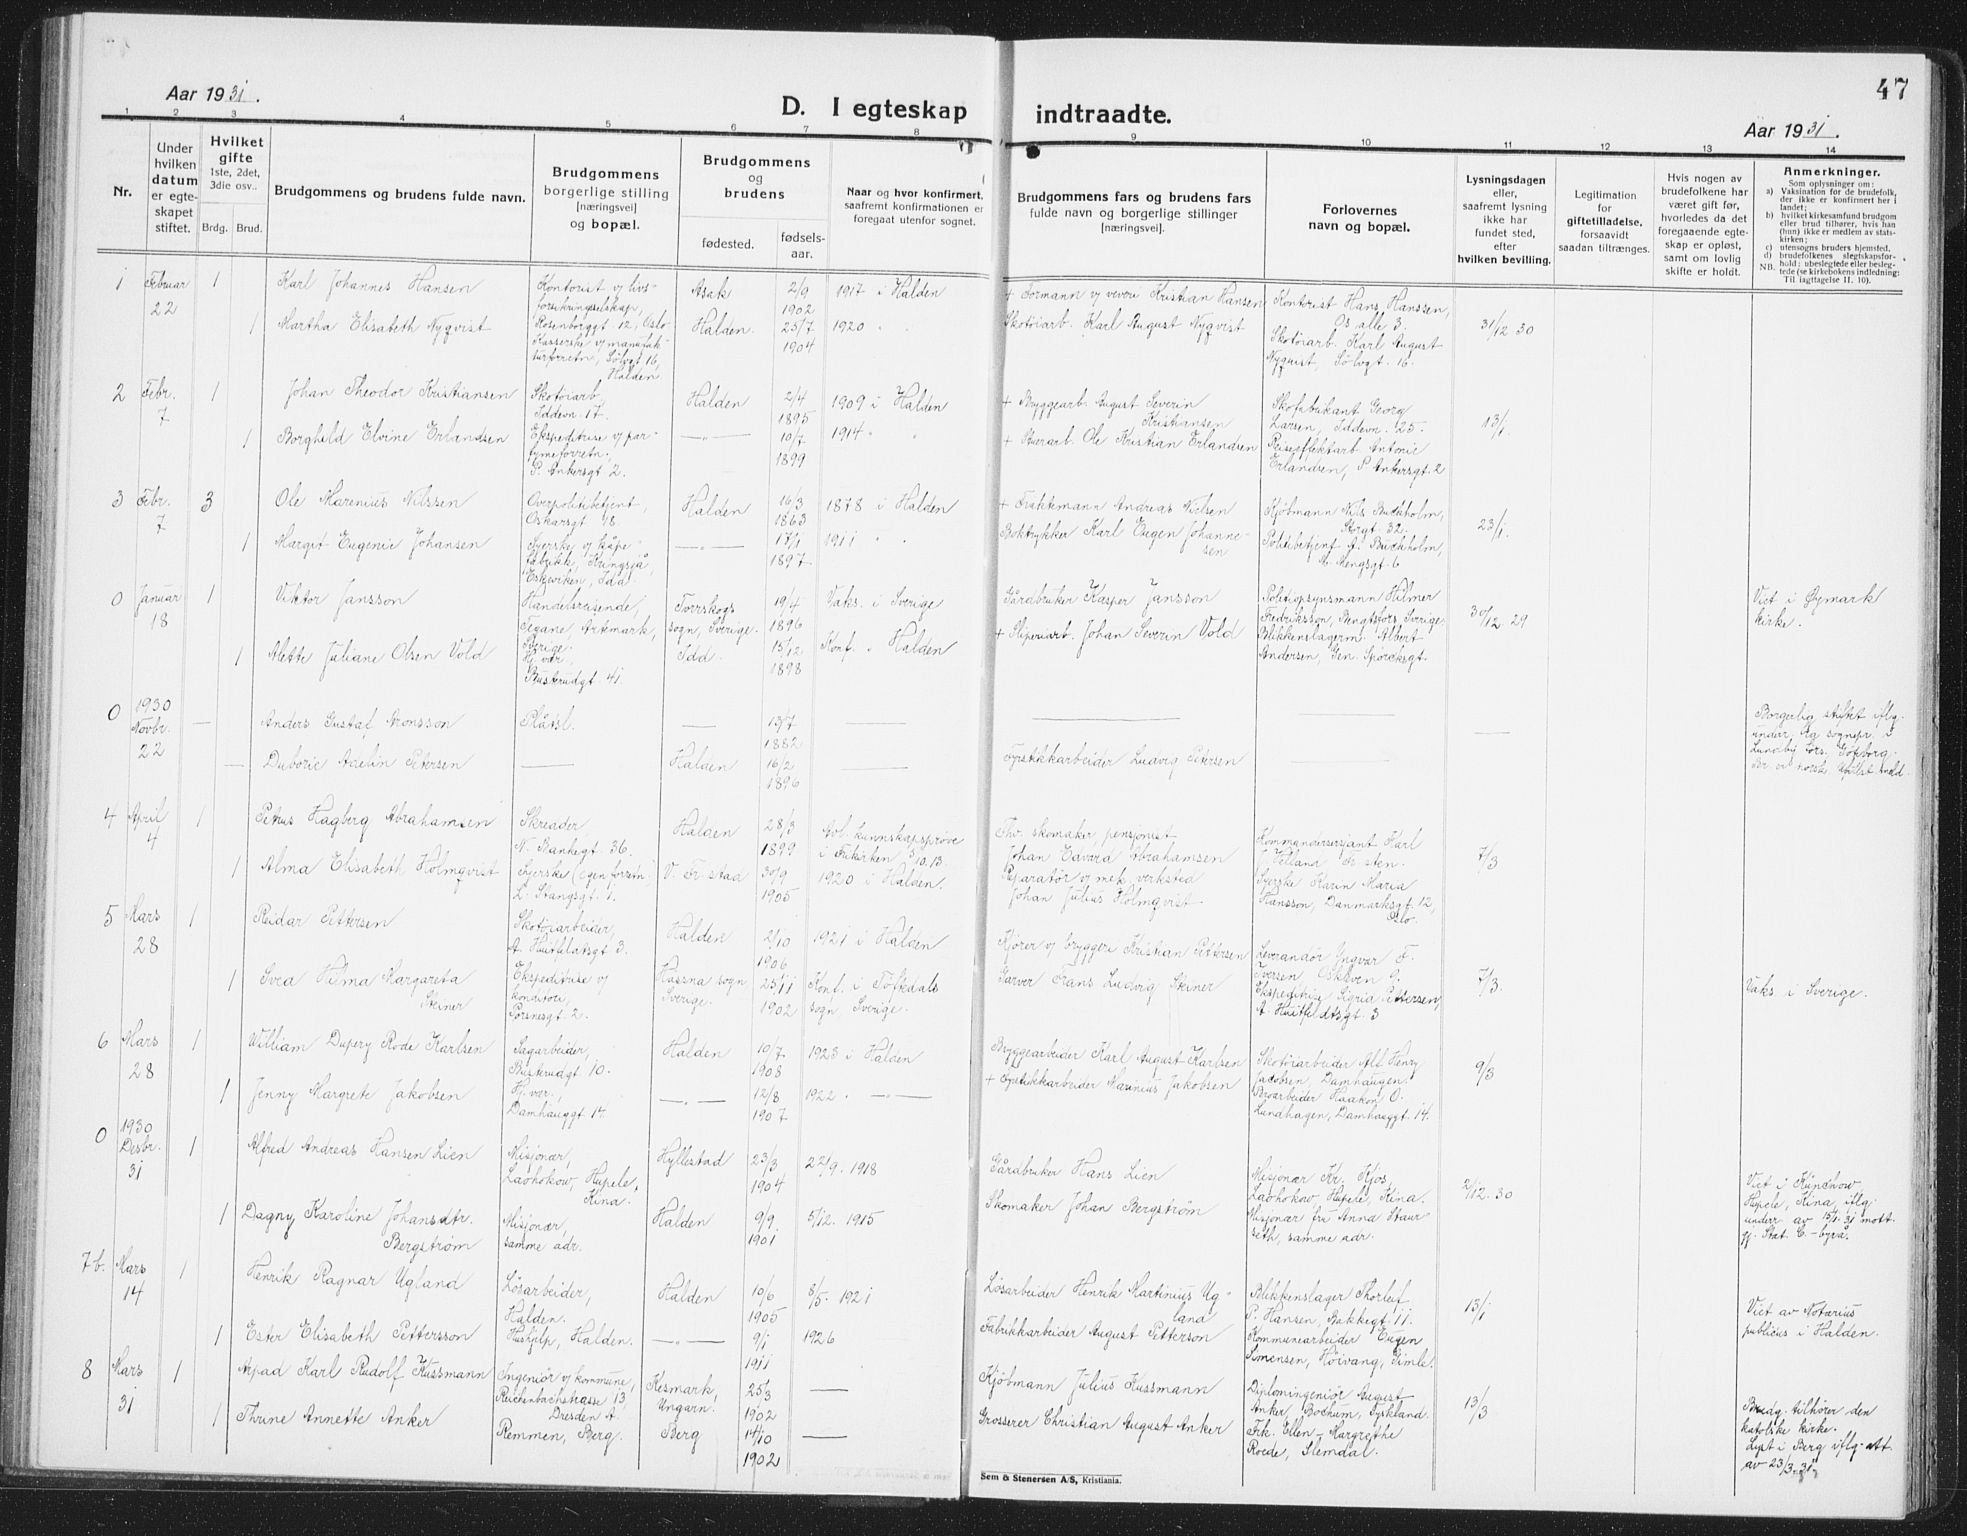 Aar 1931.
D. I egteskap indtraadte.
47
Aar 1931.
1 2 3 4 5 6 7 8 9 10 11 12 13 14
Nr.
Under hvilken datum er egteskapet stiftet.
Hvilket gifte 1ste, 2det, 3die osv..
Brdg. Brud.
Brudgommens og brudens fulde navn.
Brudgommens borgerlige stilling [næringsvei] og bopæl.
Brudgommens og brudens
fødested. fødselsaar.
Naar og hvor konfirmert, saafremt konfirmationen er foregaat utenfor sognet.
Brudgommens fars og brudens fars fulde navn og borgerlige stillinger [næringsvei].
Forlovernes navn og bopæl.
Lysningsdagen eller, saafremt lysning ikke har fundet sted, efter hvilken bevilling.
Legitimation for giftetilladelse, forsaavidt saadan tiltrænges.
Hvis nogen av brudefolkene har været gift før, hvorledes da det foregaaende egteskap er opløst, samt om lovlig skifte er holdt.
Anmerkninger.
Som oplysninger om:
a) Vaksination for de brudefolk, der ikke er konfirmert her i landet;
b) hvilket kirkesamfund brudgom eller brud tilhører, hvis han (hun) ikke er medlem av statskirken;
c) utensogns bruders hjemsted,
d) brudefolkenes slegtskapsforhold; ubeslegtede eller beslegtede (se kirkebokens indledning:
NB. Til iagttagelse II. 10).
1 Februar 22 1 Karl Johannes Hansen
Kontorist v/ livsforsikringsselskap, Rosenborggt 12, Oslo
Asak 2/9 1902 1917 i Halden
+ Formann v/ veveri Kristian Hansen
Kontorist Hans Hanssen, Os alle 3.
31/12 30
1 Martha Elisabeth Nyqvist
Kasserske v/ manufakturforretn, Sølvgt 16, Halden
Halden. 25/7 1904 1920 " "
Skotøiarb. Karl August Nyqvist
Skotøiarb. Karl August Nyquist, Sølvgt. 16.
2 Febr. 7 1 Johan Theodor Kristiansen
Skotøiarb, Iddevn. 17.
Halden 2/4 1895 1909 i Halden
+ Bryggearb. August Severin Kristiansen
Skofabrikant Georg Larsen, Iddevn. 25.
13/1.
1 Borghild Elvine Erlandsen
Ekspeditrise v/ parfymeforretn. P. Ankersgt 2.
—"— 10/7 1899 1914 " "
+ Ole Kristian Erlandsen
Reiseeffektarb. Antonie Erlandsen, P Ankersgt. 2
3 Febr. 7 3 Ole Marenius Nilssen
Overpolitibetjent, Oskarsgt 18.
Halden 16/3 1863 1878 i Halden
+ Andreas Nielsen
Kjøbmann Nils Buckholm, Storgt. 32.
23/1.
1 Margit Eugenie Johansen
Syerske v/ kåpefabrikk, Kringsjå, Eskeviken, Idd.
—"— 17/1 1897 1911 " "
Boktrykker Karl Eugen Johannesen
Politibetjent A. Buckholm, M. Mengsgt. 6
0 Januar 18 1 Viktor Jansson
Handelsreisende, Tegane, Ärtemark, Sverige.
Torrskogs sogn, Sverige. 19/4 1896 Vaks. i Sverige
Gårdbruker Kasper Jansson
Politiopsynsmann Hilmer Fredriksson, Bengtsfors, Sverige.
30/12. 29
Viet i Øymark kirke.
1 Alette Juliane Olsen Vold
Hj. vær., Busterudgt. 41.
Idd. 15/12 1898 Konf. " Halden
+ Sliperiarb. Johan Severin Vold
Blikkenslagerm. Albert Andersen, Gen. Spørcksgt.
0 1930 Novbr. 22 — Anders Gustaf Aronsson
Plåtsl. — 13/7 1882 —
Borgerlig stiftet iflg. underr. fra sognepr. i Lundby fors. Göteborg.
— Duborie Adelin Petersen
— Halden 16/2 1896 —
Fyrstikkarbeider Ludvig Petersen
4 April 4 1 Petrus Hagberg Abrahamsen
Skreader, N. Bankegt 36.
Halden 28/3 1899 Avl. kunnskapsprøve i Frikirken 5/10. 13.
Fhv. skomaker, pensjonist Johan Edvard Abrahamsen
Kommandersersjant Karl J. Velland Fr.sten.
7/3
1 Alma Elisabeth Holmqvist
Syerske (egen forretn.) L. Stangsgt. 1.
V. Fr.stad 30/9 1905 1920 i Halden.
Reparatør v/ mek. verksted Johan Julius Holmqvist
Syerske Karin Maria Hansson, Danmarksgt. 12, Oslo.
5 Mars 28 1 Reidar Pettersen
Skotøiarbeider, A. Huitfeldtsgt 3.
Halden 2/10 1906 1921 i Halden
Kjører v/ bryggeri Kristian Pettersen
Leverandør Yngvar F. Iversen, Oskven 9.
7/3.
1 Svea Hilma Margareta Skiner
Ekspeditrise v/ konditori, Torsnesgt. 2.
Håbsna sogn Sverige. 25/11 1902 Konf. i Töftedals sogn, Sverige.
Garver Frans Ludvig Skiner
Ekspeditrise Sigrid Pettersen, A. Huitfeldtsgt. 3
Vaks. i Sverige.
6 Mars 28 1 William Dupery Rode Karlsen
Sagarbeider, Busterudgt 10.
Halden 10/7 1908 1923 i Halden
Bryggearbeider Karl August Karlsen
Skotøiarbeider Alf Henry Jacobsen, Damhaugen.
9/3
1 Jenny Margrete Jakobsen
Hj. vær., Damhauggt. 14.
—"— 12/8 1907 1922 —"—
+ Fyrstikkarbeider Marinius Jakobsen
Broarbeider Haakon O. Lundhagen, Damhauggt. 14.
0 1930 Desbr. 31 1 Alfred Andreas Hansen Lien
Misjonær, Laohokow, Hupele, Kina.
Hyllestad 23/3 1904 22/9. 1918
Gårdbruker Hans Lien
Misjonær Kr. Kjos, Laohokow, Hupele, Kina.
2/12. 30
Viet i Künchow, Hupele, Kina, iflg. underr. av 15/1. 31 mott. gj. Stat. C.-byrå.
1 Dagny Karoline Johansdtr. Bergstrøm
Misjonær, samme adr.
Halden 9/9. 1901 5/12. 1915
Skomaker Johan Bergstrøm
Misjonær fru Anna Staurseth, samme adr.
7b. Mars 14 1 Henrik Ragnar Ugland
Løsarbeider, Halden.
Halden 10/6 1905 8/5. 1921
Løsarbeider Henrik Martinius Ugland
Blikkenslager Thorleif P. Hansen, Bakkegt. 11.
13/1
Viet av Notarius publicus i Halden.
1 Ester Elisabeth Pettersson
Hushjelp, Halden.
—"— 9/1 1911 1926
Fabrikkarbeider August Petterson
Kommunearbeider Eugen Simensen, Höivang, Gimle.
8 Mars 31 1 Arpad Karl Rudolf Kussmann
Ingeniør v/ kommune, Reichenbachstrasse 13, Dresden A.
Kesmark, Ungarn. 25/3 1902 —
Kjöbmann Julius Kussmann
Diplomingeniør August Anker, Bochum, Tyskland.
13/3
Brudg. tilhører den katolske kirke. Lyst i Berg iflg. att. av 23/3. 31.
1 Thrine Annette Anker
Remmen, Berg.
Berg 14/10 1902 —
Grosserer Christian August Anker
Frk. Ellen-Margrethe Roede, Slemdal.
Sem & Stenersen A/S, Kristiania.